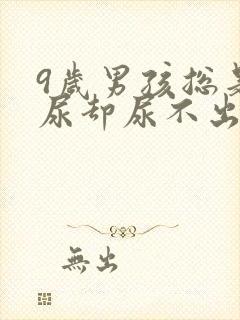 9歲男孩总是
尿却尿不出
無出